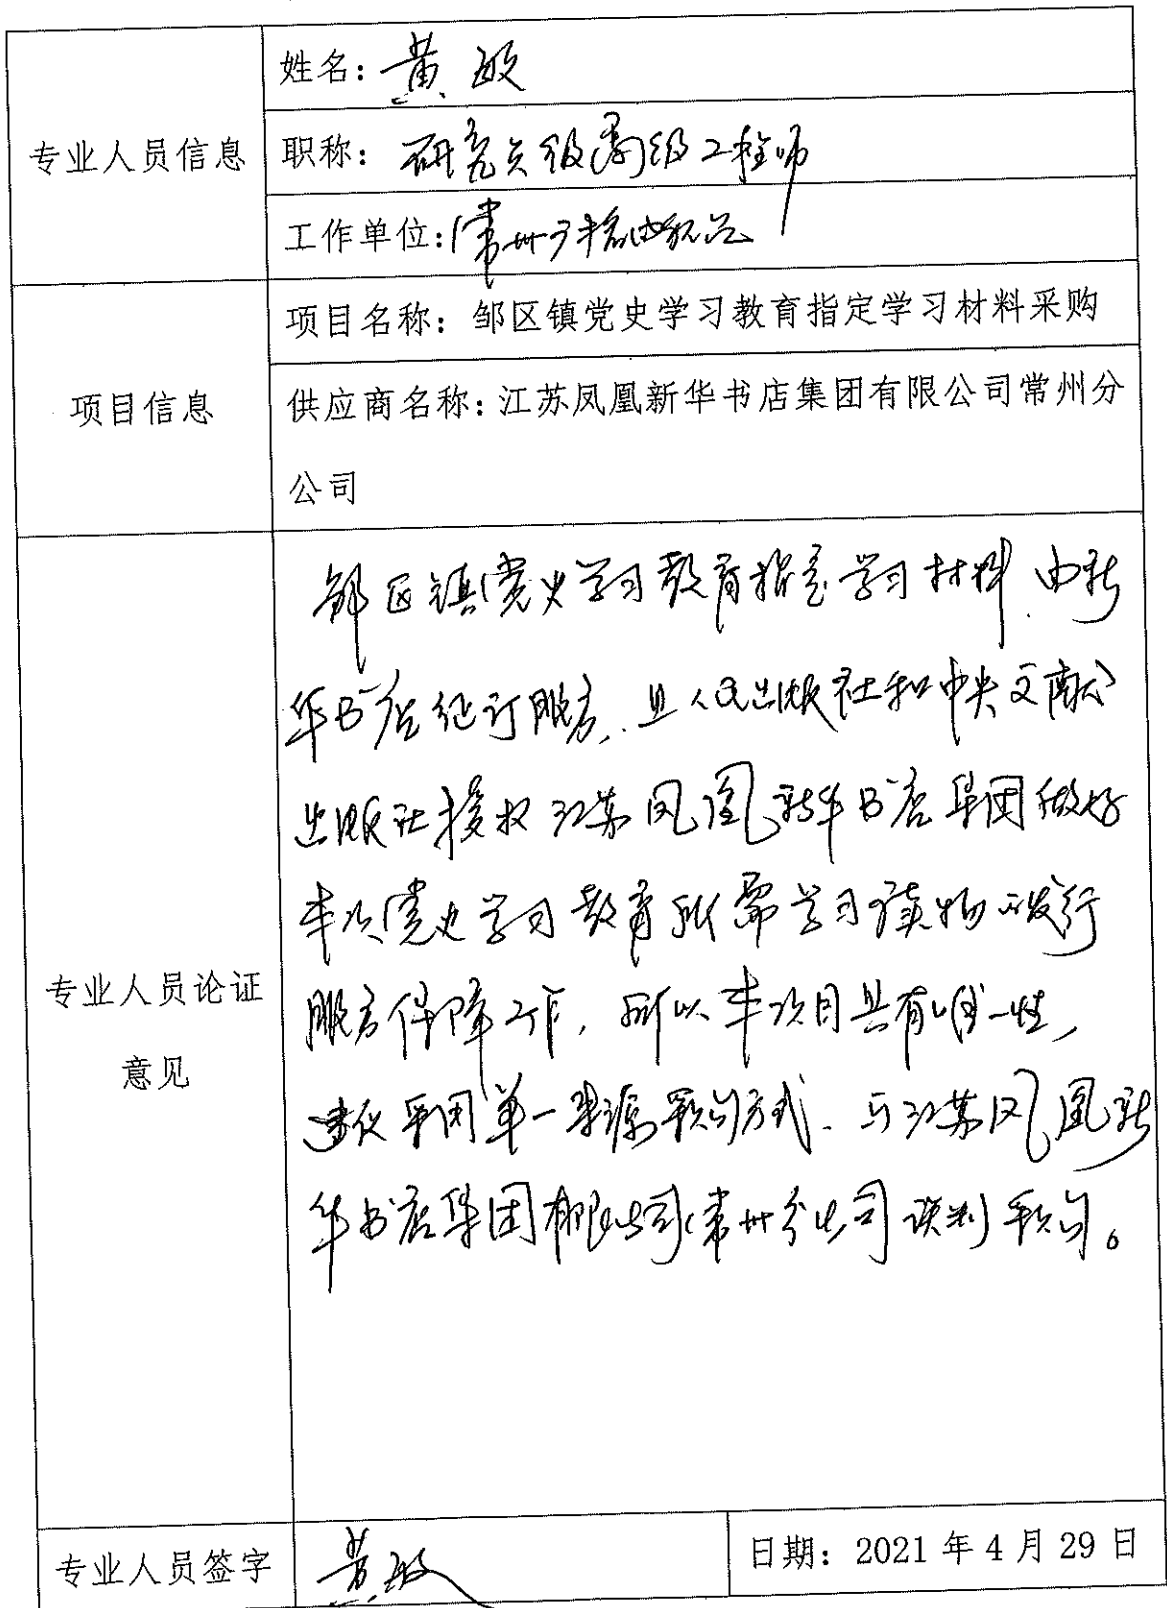 专业人员信息
姓名：黄敏
职称：研究员级高级工程师
工作单位：常州
项目信息
项目名称：邹区镇党史学习教育指定学习材料采购
供应商名称：江苏凤凰新华书店集团有限公司常州分
公司
专业人员论证
意见
邹区镇党史学习教育指定学习材料由新
华书店征订服务，且人民出版社和中央文献
出版社授权江苏凤凰新华书店集团做好
本次党史学习教育所需学习读物的发行
服务保障工作，所以本项目具有唯一性，
建议采用单一来源采购方式，与江苏凤凰新
华书店集团有限公司常州分公司谈判采购。
专业人员签字
黄敏
日期：2021年4月29日